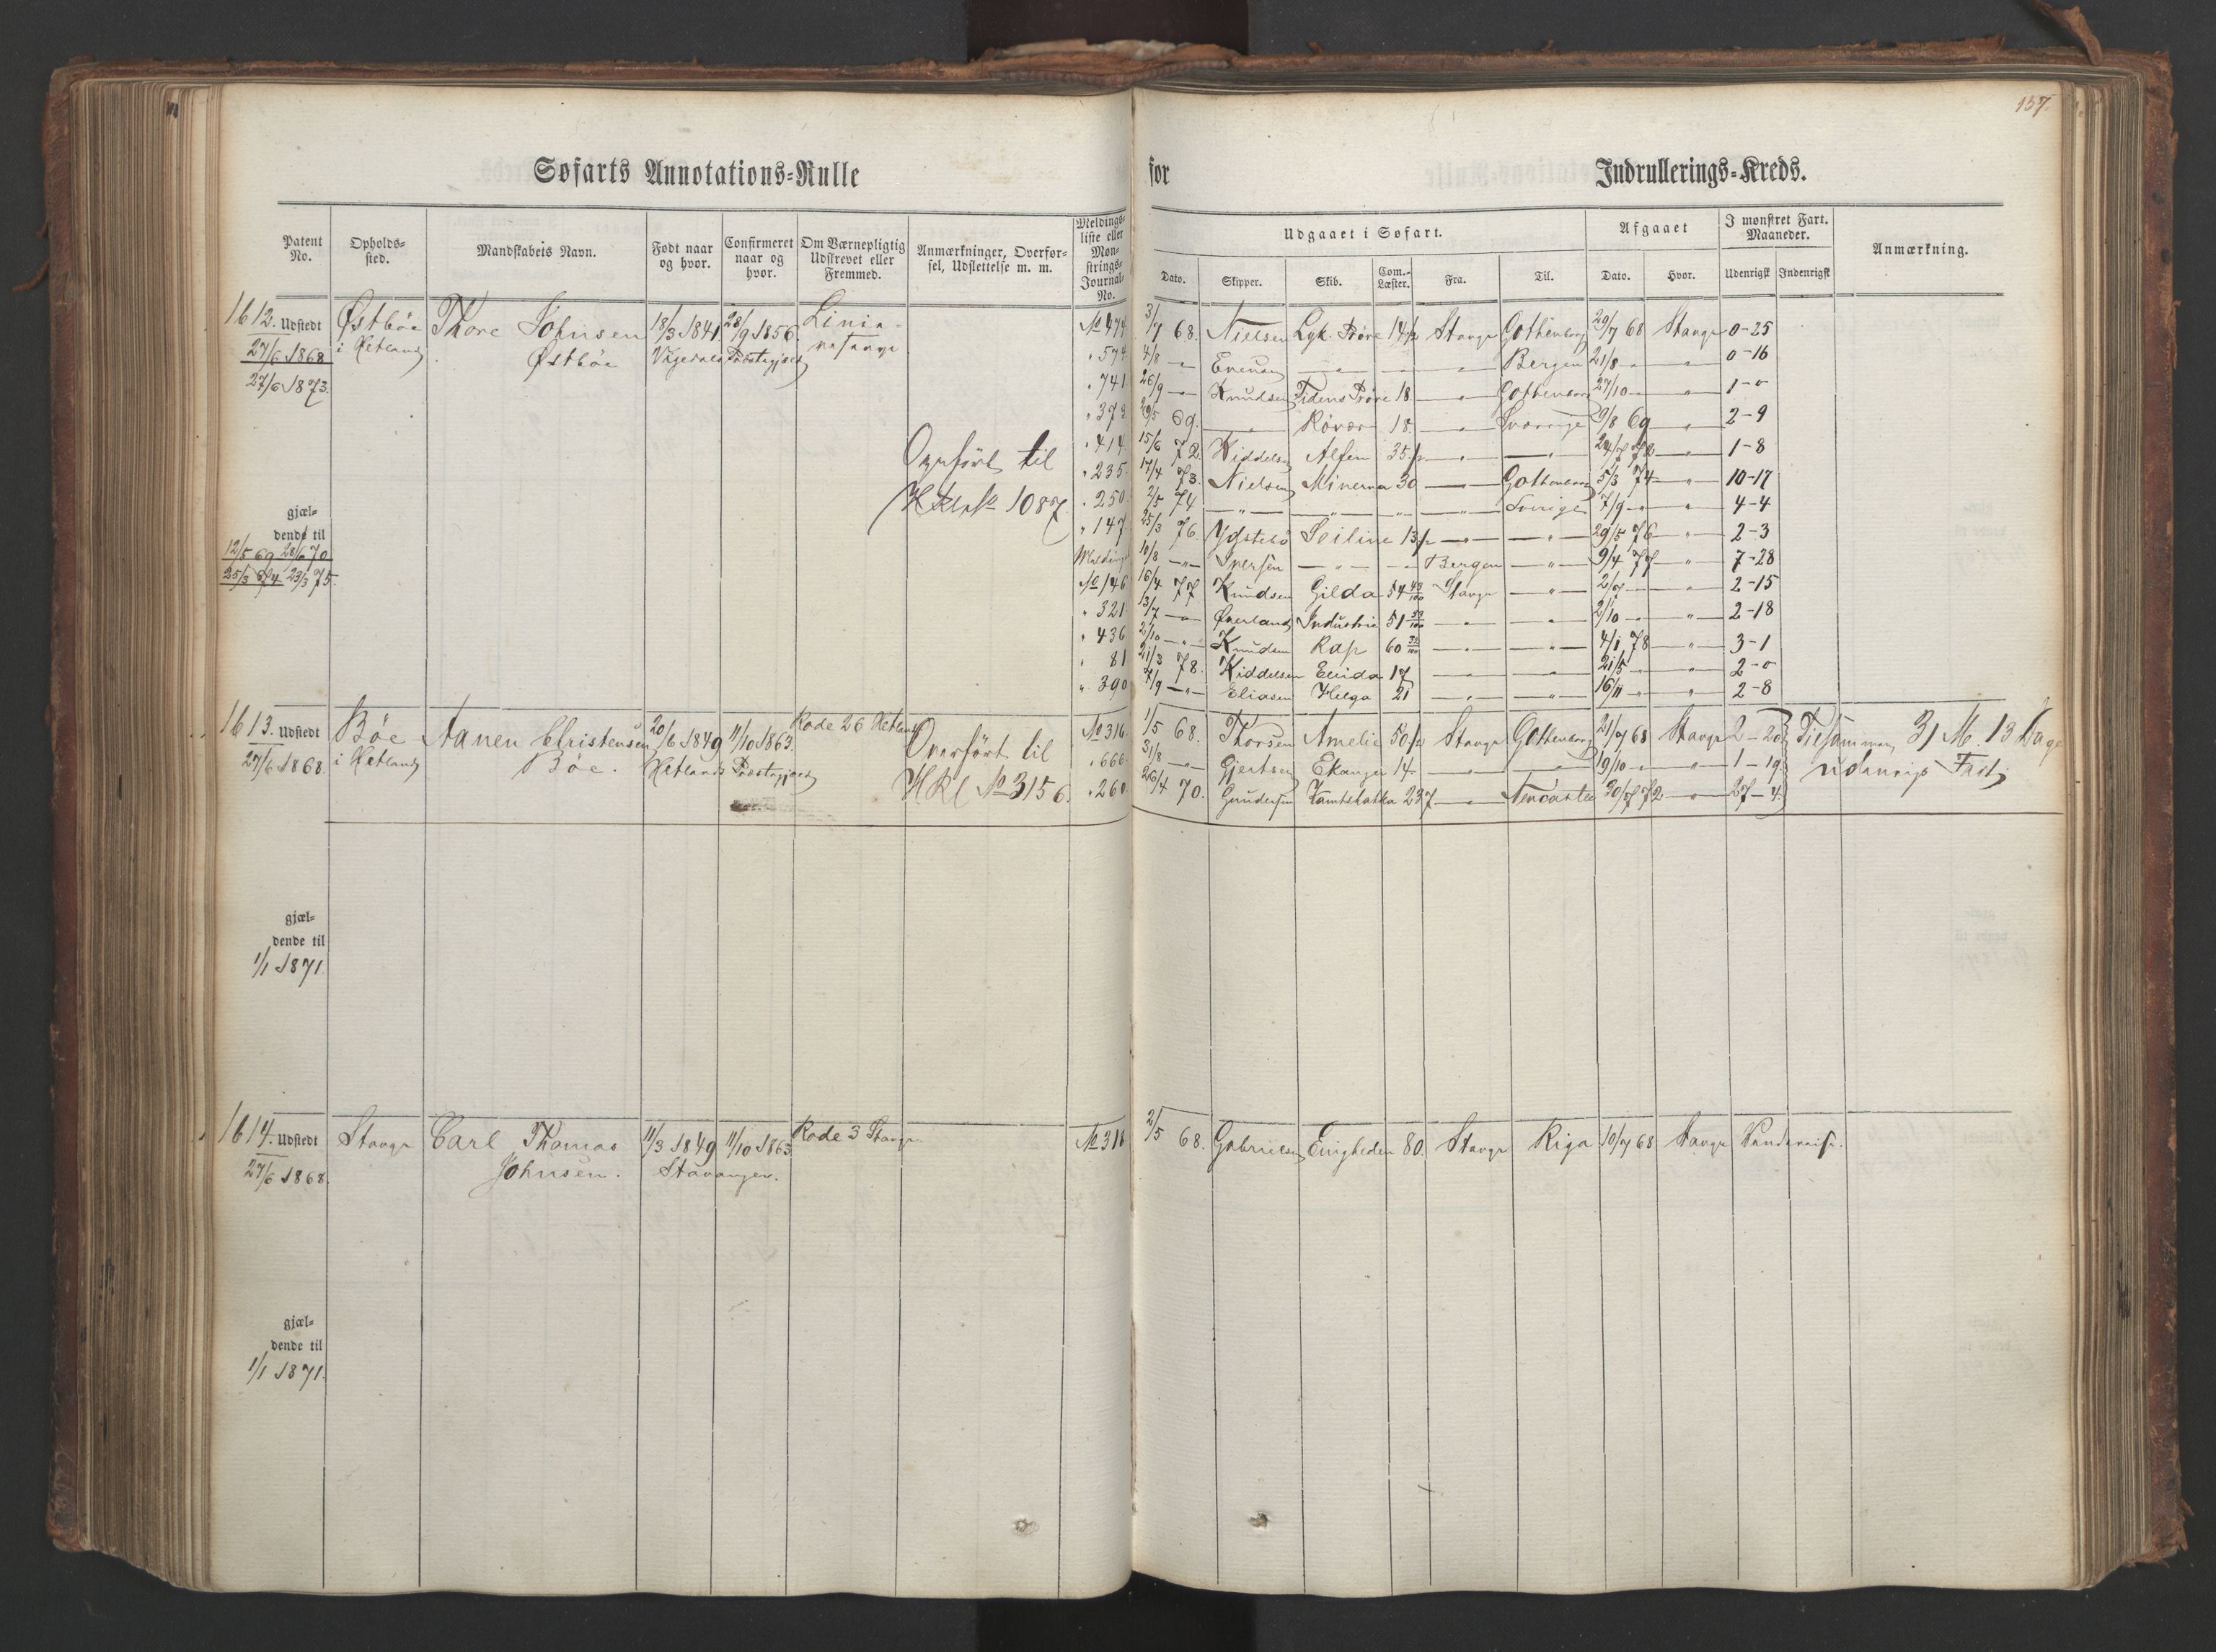 157.
Søfarts Annotations-Rulle for Indrullerings-Kreds.
Patent No. Opholdssted. Mandskabets Navn. Født naar og hvor. Confirmeret naar og hvor. Om Værnepligtig Udskrevet eller Fremmed. Anmærkninger, Overførsel, Udslettelse m. m. Meldingsliste eller Mønstrings-Journal-No. Udgaaet i Søfart. Afgaaet I mønstret Fart. Maaneder. Anmærkning.
Dato. Skipper. Skib. Com.-Læster. Fra. Til. Dato. Hvor. Udenrigsk Indenrigsk
1612. Udstedt Østbøe Thore Johnsen 18/3 1841 28/9 1856. № 474 3/7 68. Nielsen Lyk. Prøve 14½ Stavgr Gothenborg 29/7 68 Stavgr 0-25
27/6 1868 i Hetland Østbøe Præstegjæld " 574 4/8 Bergen 21/8 0-16
27/6 1873. " 741 26/9 Knudsen Tidens Prøve 18. Gothenborg 27/10 1-0
" 373 69. " Røvær 18. Sverrige 9/8 69 2-9
Overført til " 414 15/6 72. Kiddelsen 35½ 1-8
" 235 17/4 73. Nielsen Minerva 30 Gothenborg 5/3 74 10-17
1087. " 250 2/5 74 Sverige 7/9 4-4
gjældende til " 147 25/3 76. Seiline 13½ 29/5 76 2-3
12/5 69 28/6 70 10/8 Iversen Bergen 9/4 77 7-28
23/3 75. № 146 16/4 77 Knudsen Gilda 54 49/100 Stavgr 2/7 2-15
" 321 13/7 Øverland Industrie 51 2/10 2-18
" 436 2/10 Knudsen Rap 60 4/1 78 3-1
" 81 21/3 78. Kiddelsen 17 21/5 2-0
" 390 7/9 Eliasen Helga 21 16/11 2-8
1613. Udstedt Bøe Aanen Christensen 20/6 1849 11/10 1863. Rode 26 Hetland № 316 1/5 68. Thorsen Amelie 50½ Stavgr Gothenborg 21/7 68 Stavgr 2-20 Tilsammen 31 M. 13 Dage
27/6 1868. i Hetland Bøe. Hetlands Præstegjæld Overført til " 666 31/8 Gjertsen Ekanger 14 19/10 1-19 udenrigs Fart
HRl № 3156. " 260 26/4 70. Gundersen Kamtskatka 237 30/7 72 27-4
gjældende til
1/1 1871.
1614. Udstedt Stavgr Carl Thomas 11/3 1849 11/10 1863. Rode 3 Stavgr. № 316 2/5 68. Gabrielsen Enigheden 80. Stavgr Riga 10/7 68 Stavgr
27/6 1868. Johnsen. Stavanger.
gjældende til
1/1 1871.